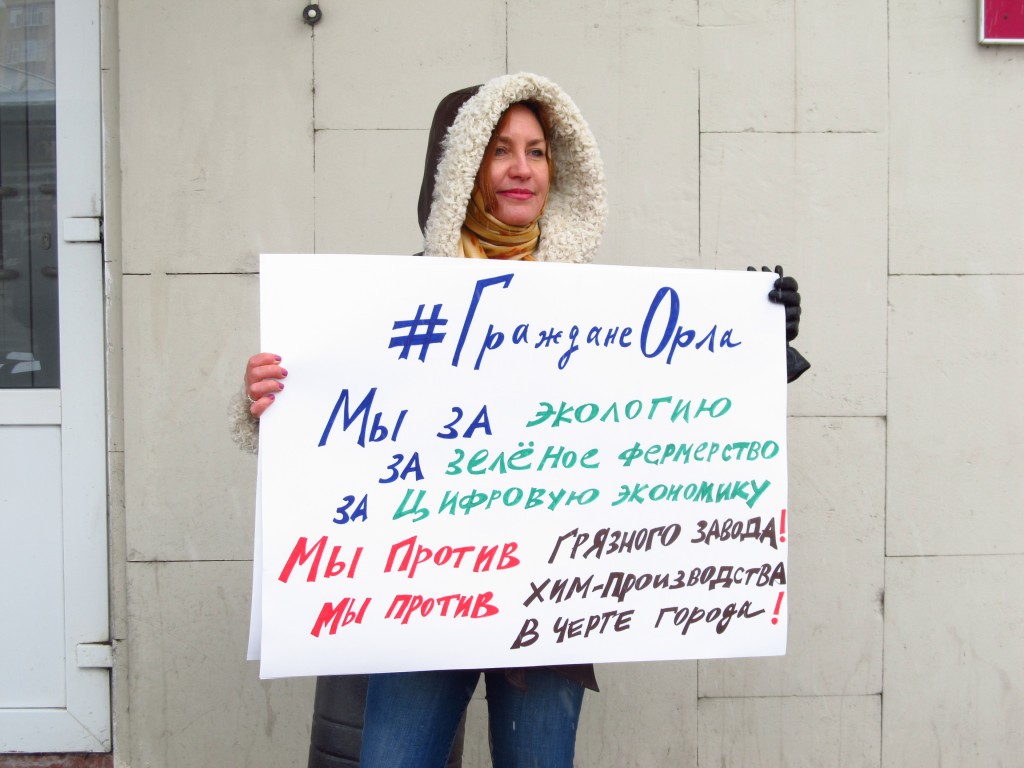 #ГражданеОрла
Мы за экологию
за зелёное фермерство
за Цифровую экономику
Мы против грязного завода!
Мы против хим-производства
в черте города!